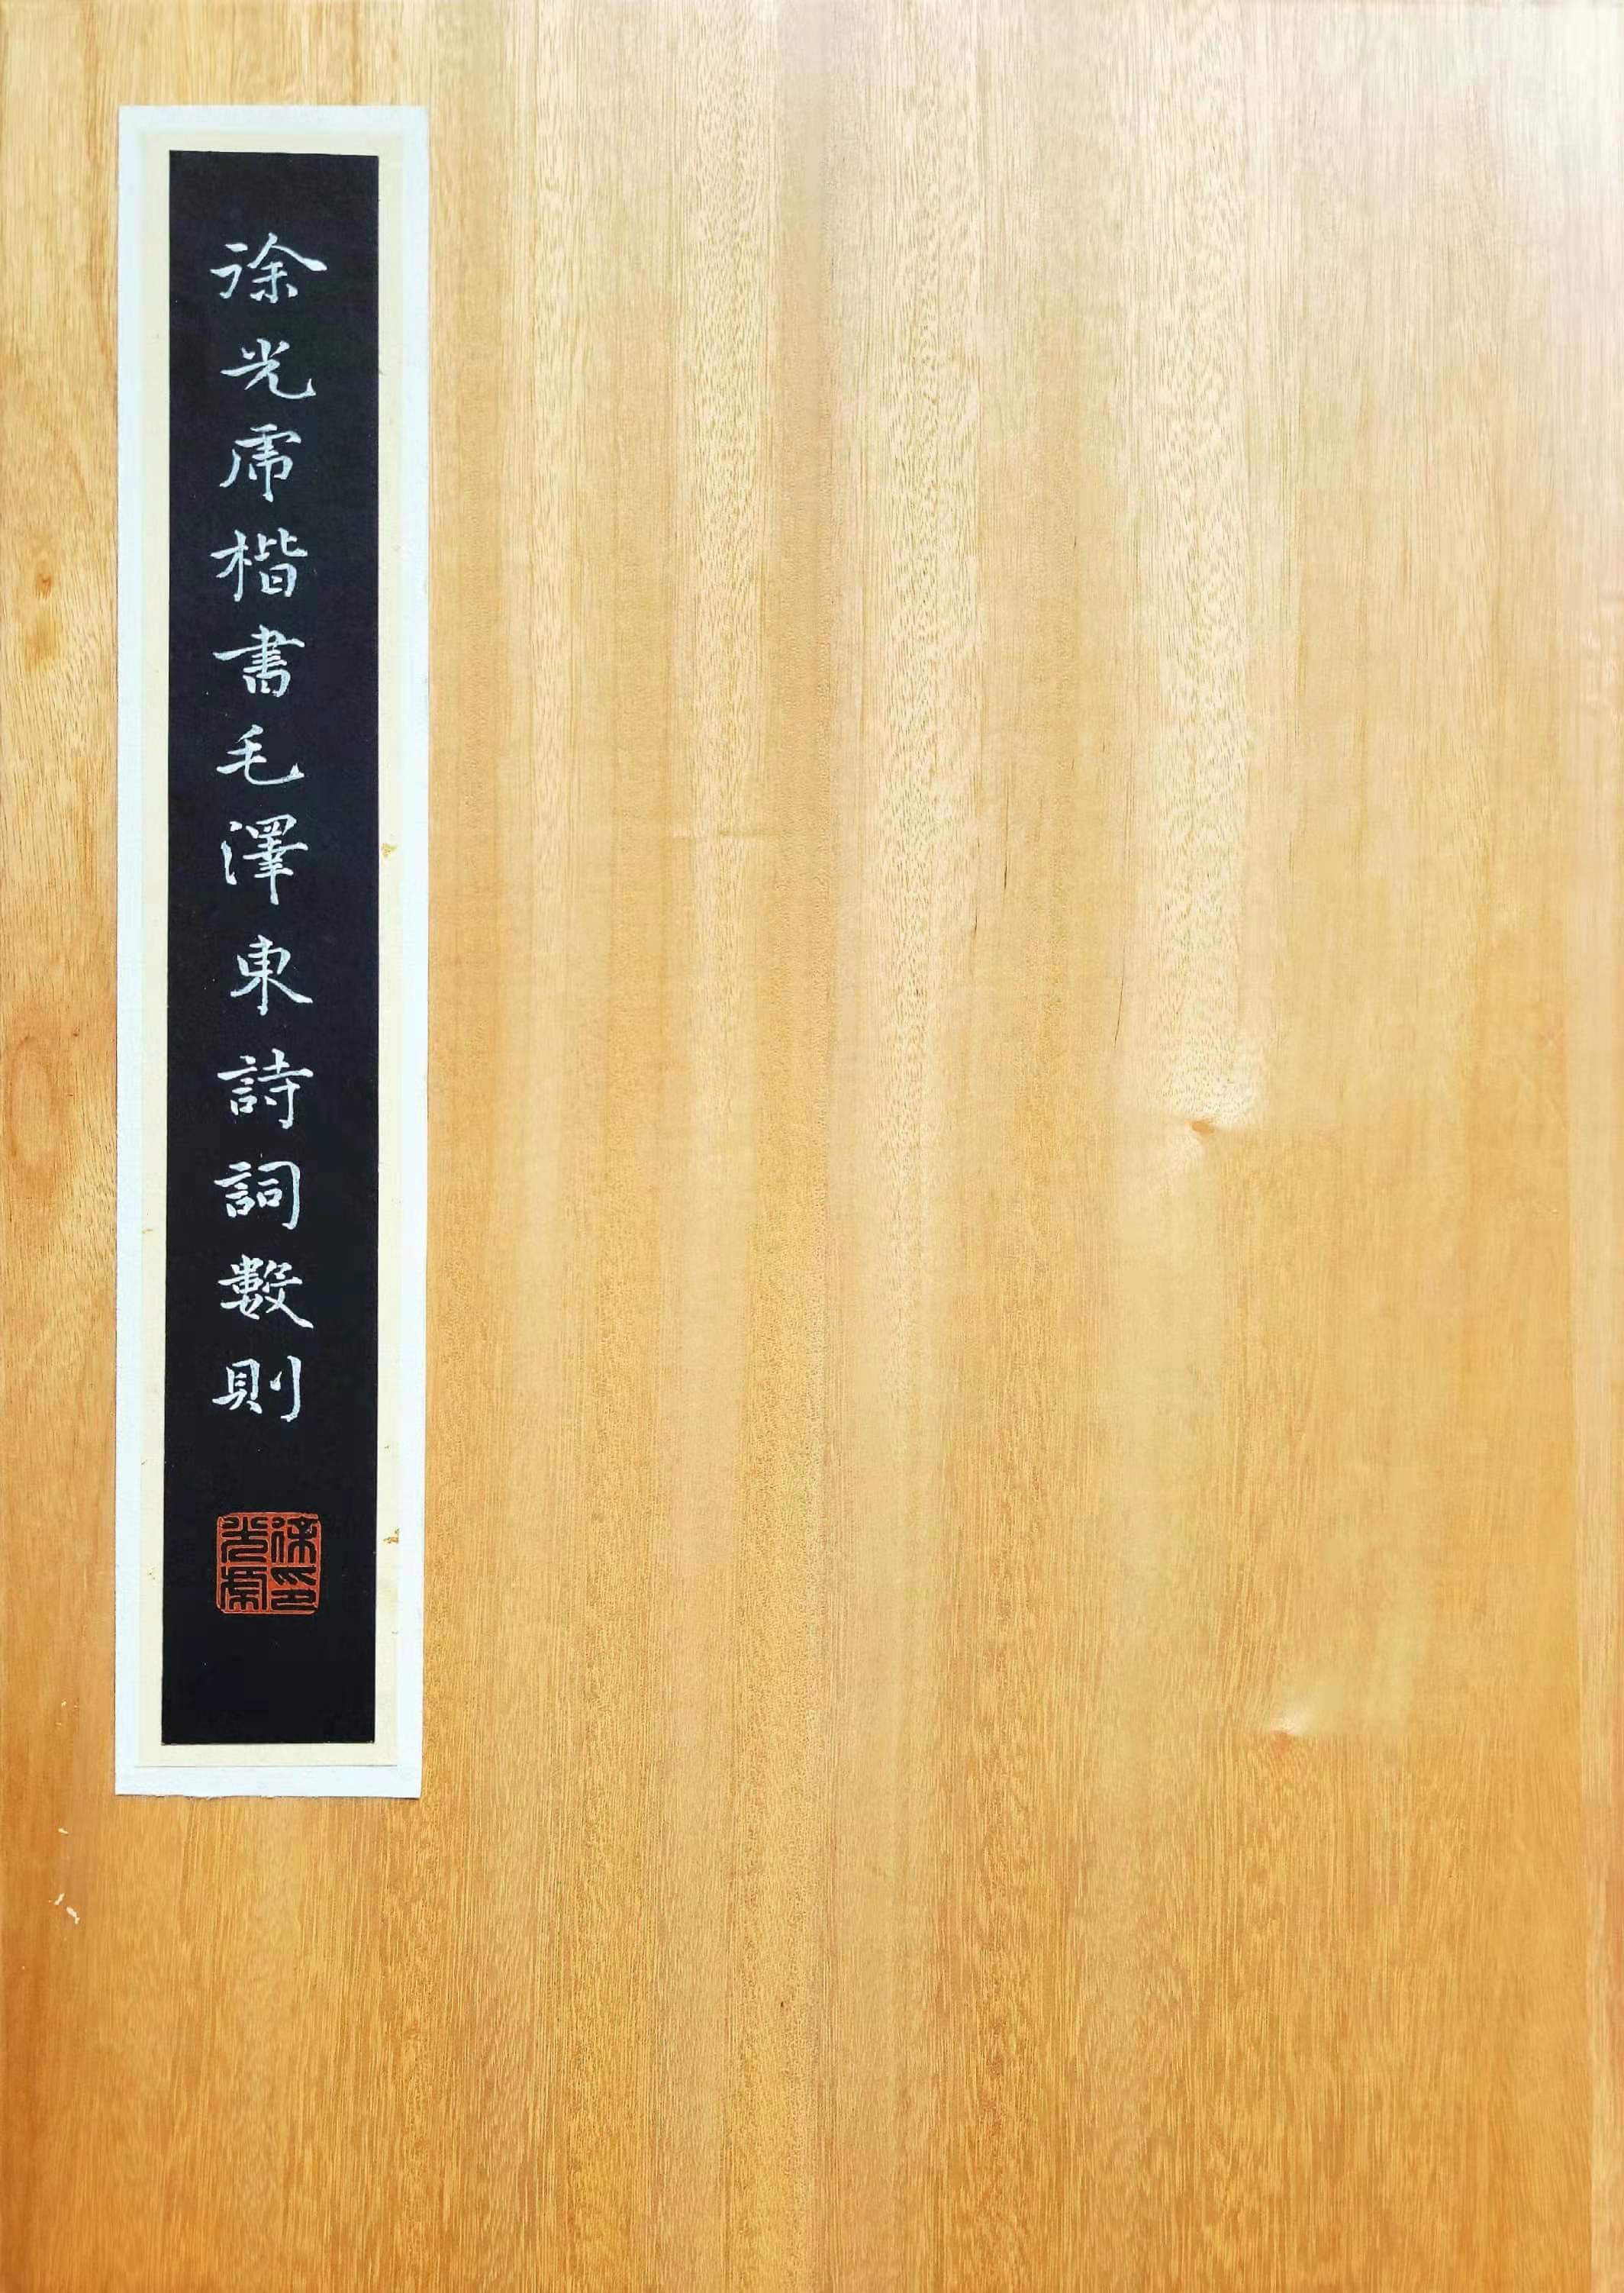 徐光虎楷書毛澤東詩詞數則
徐印光虎